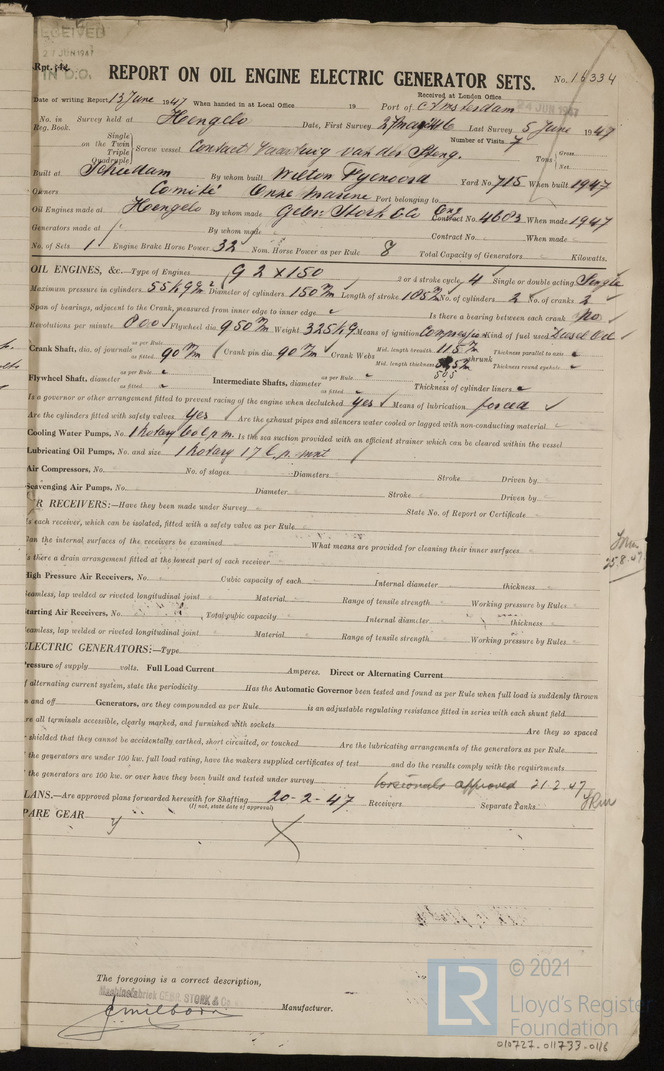 RECEIVED
27 JUN 1947
IN D.O.
Rpt. 4c.
REPORT ON OIL ENGINE ELECTRIC GENERATOR SETS.
No. 16334
Received at London Office
24 JUN 1947
Date of writing Report 13 June 1947 When handed in at Local Office 19 Port of Amsterdam
No. in Reg. Book. Survey held at Hengelo Date, First Survey 27 Mar 46 Last Survey 5 June 1947
Number of Visits 7
on the Single Twin Triple Quadruple Screw vessel Contact van der Steng. Tons Gross Net
Built at Schiedam By whom built Wilton Fyenoord Yard No. 715 When built 1947
Owners Comité Onze Marine Port belonging to
Oil Engines made at Hengelo By whom made Gebr. Stork & Co Eng Contract No. 4603 When made 1947
Generators made at By whom made Contract No. When made
No. of Sets 1 Engine Brake Horse Power 32 Nom. Horse Power as per Rule 8 Total Capacity of Generators Kilowatts.
OIL ENGINES, &c.—Type of Engines G 2 x 150 2 or 4 stroke cycle 4 Single or double acting Single
Maximum pressure in cylinders 55 Diameter of cylinders 150 Length of stroke No. of cylinders 2 No. of cranks 2
Span of bearings, adjacent to the Crank, measured from inner edge to inner edge Is there a bearing between each crank No
Revolutions per minute 800 Flywheel dia. 950 m/m Weight 325 kg Means of ignition Compression Kind of fuel used Diesel Oil
Crank Shaft, dia. of journals as per Rule as fitted 90 m/m Crank pin dia. 90 m/m Crank Webs Mid. length breadth 115 Mid. length thickness shrunk Thickness parallel to axis Thickness round eyehole
Flywheel Shaft, diameter as per Rule as fitted Intermediate Shafts, diameter as per Rule as fitted Thickness of cylinder liners
Is a governor or other arrangement fitted to prevent racing of the engine when declutched Yes Means of lubrication forced
Are the cylinders fitted with safety valves Yes Are the exhaust pipes and silencers water cooled or lagged with non-conducting material
Cooling Water Pumps, No. 1 Rotary 60 l.p.m. Is the sea suction provided with an efficient strainer which can be cleared within the vessel
Lubricating Oil Pumps, No. and size 1 Rotary 17 l.p. mnt
Air Compressors, No. No. of stages Diameters Stroke Driven by
Scavenging Air Pumps, No. Diameter Stroke Driven by
R RECEIVERS:—Have they been made under Survey State No. of Report or Certificate
s each receiver, which can be isolated, fitted with a safety valve as per Rule
an the internal surfaces of the receivers be examined What means are provided for cleaning their inner surfaces
25.8.47
s there a drain arrangement fitted at the lowest part of each receiver
High Pressure Air Receivers, No. Cubic capacity of each Internal diameter thickness
eamless, lap welded or riveted longitudinal joint Material Range of tensile strength Working pressure by Rules
tarting Air Receivers, No. Total cubic capacity Internal diameter thickness
eamless, lap welded or riveted longitudinal joint Material Range of tensile strength Working pressure by Rules
ELECTRIC GENERATORS:—Type
ressure of supply volts. Full Load Current Amperes. Direct or Alternating Current
f alternating current system, state the periodicity Has the Automatic Governor been tested and found as per Rule when full load is suddenly thrown
n and off Generators, are they compounded as per Rule is an adjustable regulating resistance fitted in series with each shunt field
re all terminals accessible, clearly marked, and furnished with sockets Are they so spaced
shielded that they cannot be accidentally earthed, short circuited, or touched Are the lubricating arrangements of the generators as per Rule
the generators are under 100 kw. full load rating, have the makers supplied certificates of test and do the results comply with the requirements
the generators are 100 kw. or over have they been built and tested under survey
torsionals approved 21.2.47
LANS.—Are approved plans forwarded herewith for Shafting 20-2-47 Receivers Separate Tanks
(If not, state date of approval)
PARE GEAR
The foregoing is a correct description,
Machinefabriek GEBR. STORK & Co.
Manufacturer.
LR
© 2021
Lloyd's Register
Foundation
010727-011733-0116